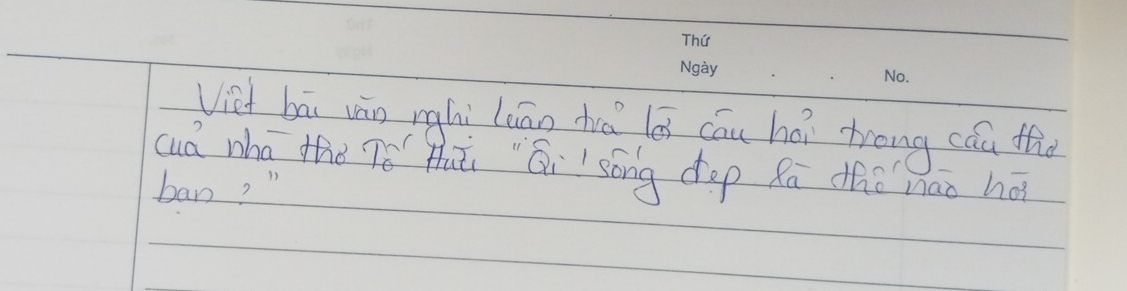 Thứ
Ngày . . No.
Viết bài văn nghị luận trả lời câu hỏi trong câu thơ
của nhà thơ Tố Hữu "Ôi! sống đẹp là thế nào hỡi
bạn?"